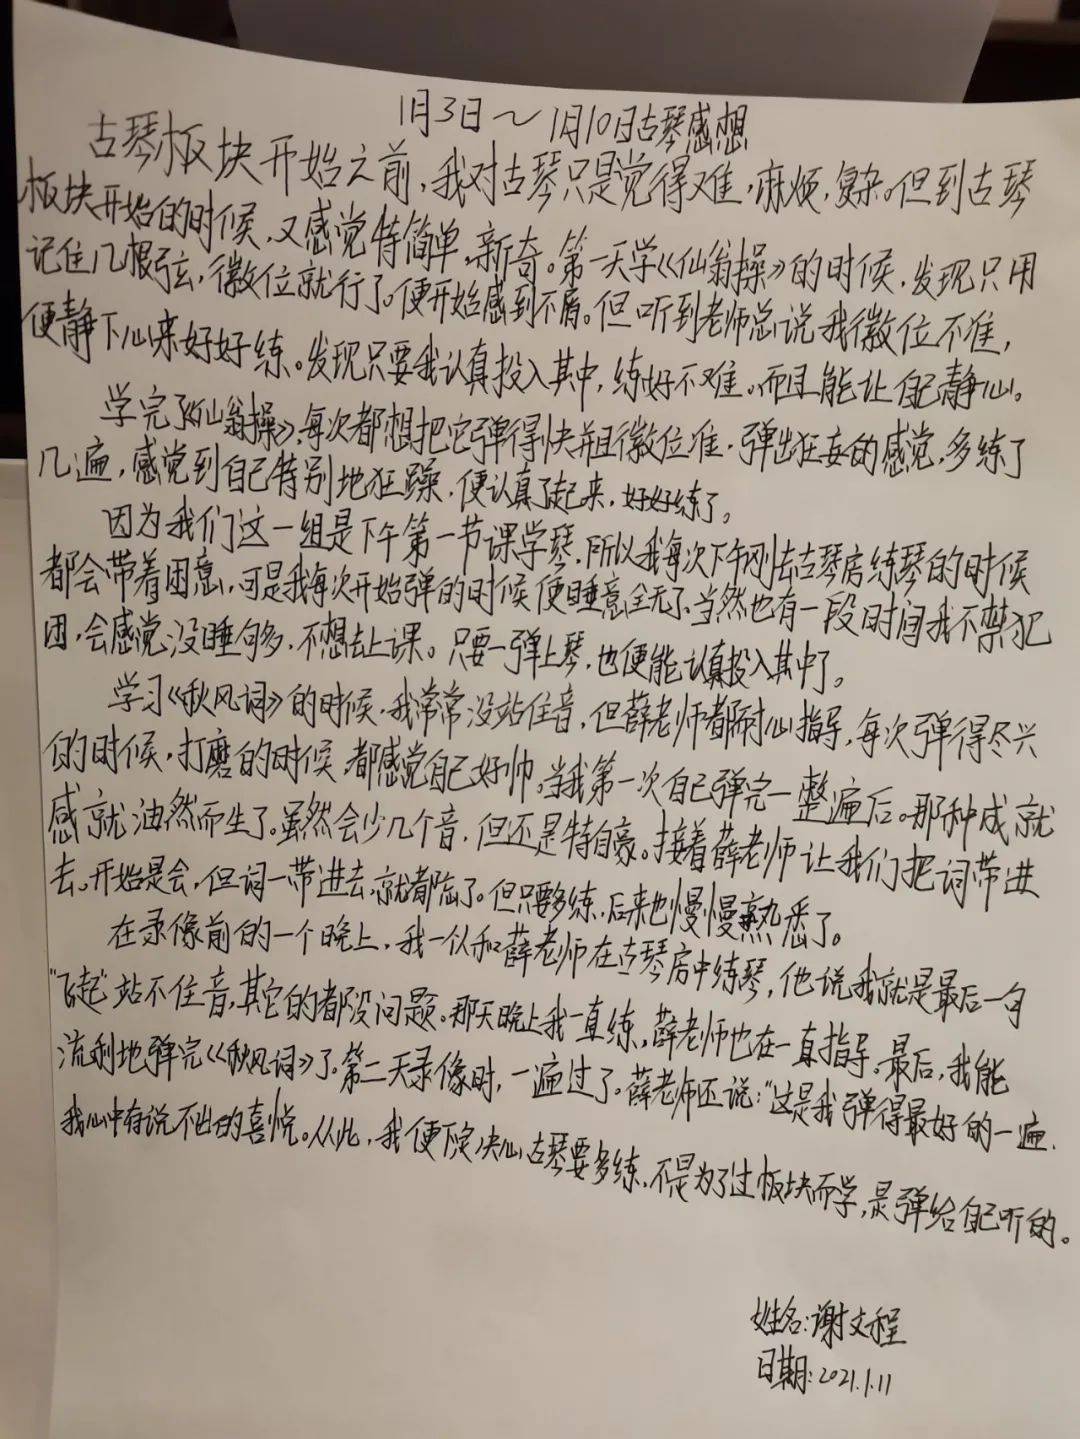 1月3日～1月10日古琴感想
古琴板块开始之前，我对古琴只是觉得难，麻烦，复杂。但到古琴
板块开始的时候，又感觉特简单，新奇。第一天学《仙翁操》的时候，发现只用
记住几根弦，徽位就行了。便开始感到不屑。但听到老师总说我徽位不准，
便静下心来好好练。发现只要我认真投入其中，练好不难。而且能让自己静心。
学完了《仙翁操》，每次都想把它弹得快并且徽位准，弹出狂妄的感觉，多练了
几遍，感觉到自己特别地狂躁，便认真了起来，好好练了。
因为我们这一组是下午第一节课学琴，所以我每次下午刚去古琴房练琴的时候
都会带着困意，可是我每次开始弹的时候便睡意全无了，当然也有一段时间我不禁犯
困，会感觉没睡够多，不想去上课。只要一弹上琴，也便能认真投入其中了。
学习《秋风词》的时候，我常常没站住音，但薛老师都耐心指导，每次弹得尽兴
的时候，打磨的时候，都感觉自己好帅。当我第一次自己弹完一整遍后。那种成就
感就油然而生了。虽然会少几个音，但还是特自豪。接着薛老师让我们把词带进
去。开始是会，但词一带进去，就都乱了。但只要多练，后来也慢慢熟悉了。
在录像前的一个晚上，我一个人和薛老师在古琴房中练琴，他说我就是最后一句
"飞起"站不住音，其它的都没问题。那天晚上我一直练，薛老师也在一直指导。最后，我能
流利地弹完《秋风词》了。第二天录像时，一遍过了。薛老师还说："这是我弹得最好的一遍.
我心中有说不出的喜悦。从此，我便下定决心古琴要多练，不是为了过板块而学，是弹给自己听的。
姓名：谢文程
日期：2021.1.11